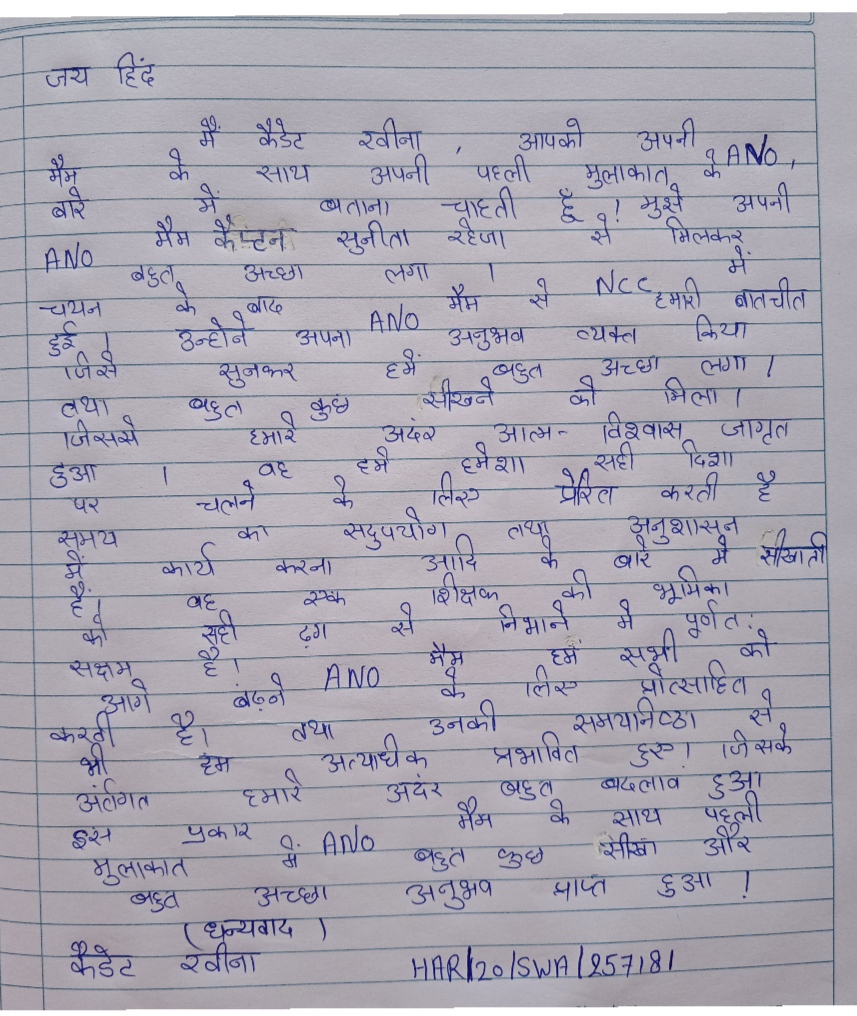 जय हिंद
मैं कैडेट रवीना, आपको अपनी ANO,
मैम के साथ अपनी पहली मुलाकात के
बारे में बताना चाहती हूँ ! मुझे अपनी
ANO मैम कैप्टन सुनीता रहेजा से मिलकर
बहुत अच्छा लगा । NCC में
चयन के बाद ANO मैम से हमारी बातचीत
हुई । उन्होंने अपना अनुभव व्यक्त किया
जिसे सुनकर हमें बहुत अच्छा लगा ।
तथा बहुत कुछ सीखने को मिला ।
जिससे हमारे अदंर आत्म- विश्वास जागृत
हुआ । वह हमे हमेशा सही दिशा
पर चलने के लिए प्रेरित करती है
समय का सदुपयोग तथा अनुशासन
में कार्य करना आदि के बारे मे सीखाती
हैं। वह एक शिक्षक की भूमिका
को सही ढ़ग से निभाने मे पूर्णत:
सक्षम है । ANO मैम हमें सभी को
आगे बढ़ने के लिए प्रोत्साहित
करती है। तथा उनकी समयनिष्ठा से
भी हम अत्याधिक प्रभावित हुए। जिसके
अंर्तगत हमारे अदंर बहुत बदलाव हुआ
इस प्रकार ANO मैम के साथ पहली
मुलाकात में बहुत कुछ सीखा और
बहुत अच्छा अनुभव प्राप्त हुआ !
(धन्यवाद)
कैडेट रवीना HAR/20/SWA/257181